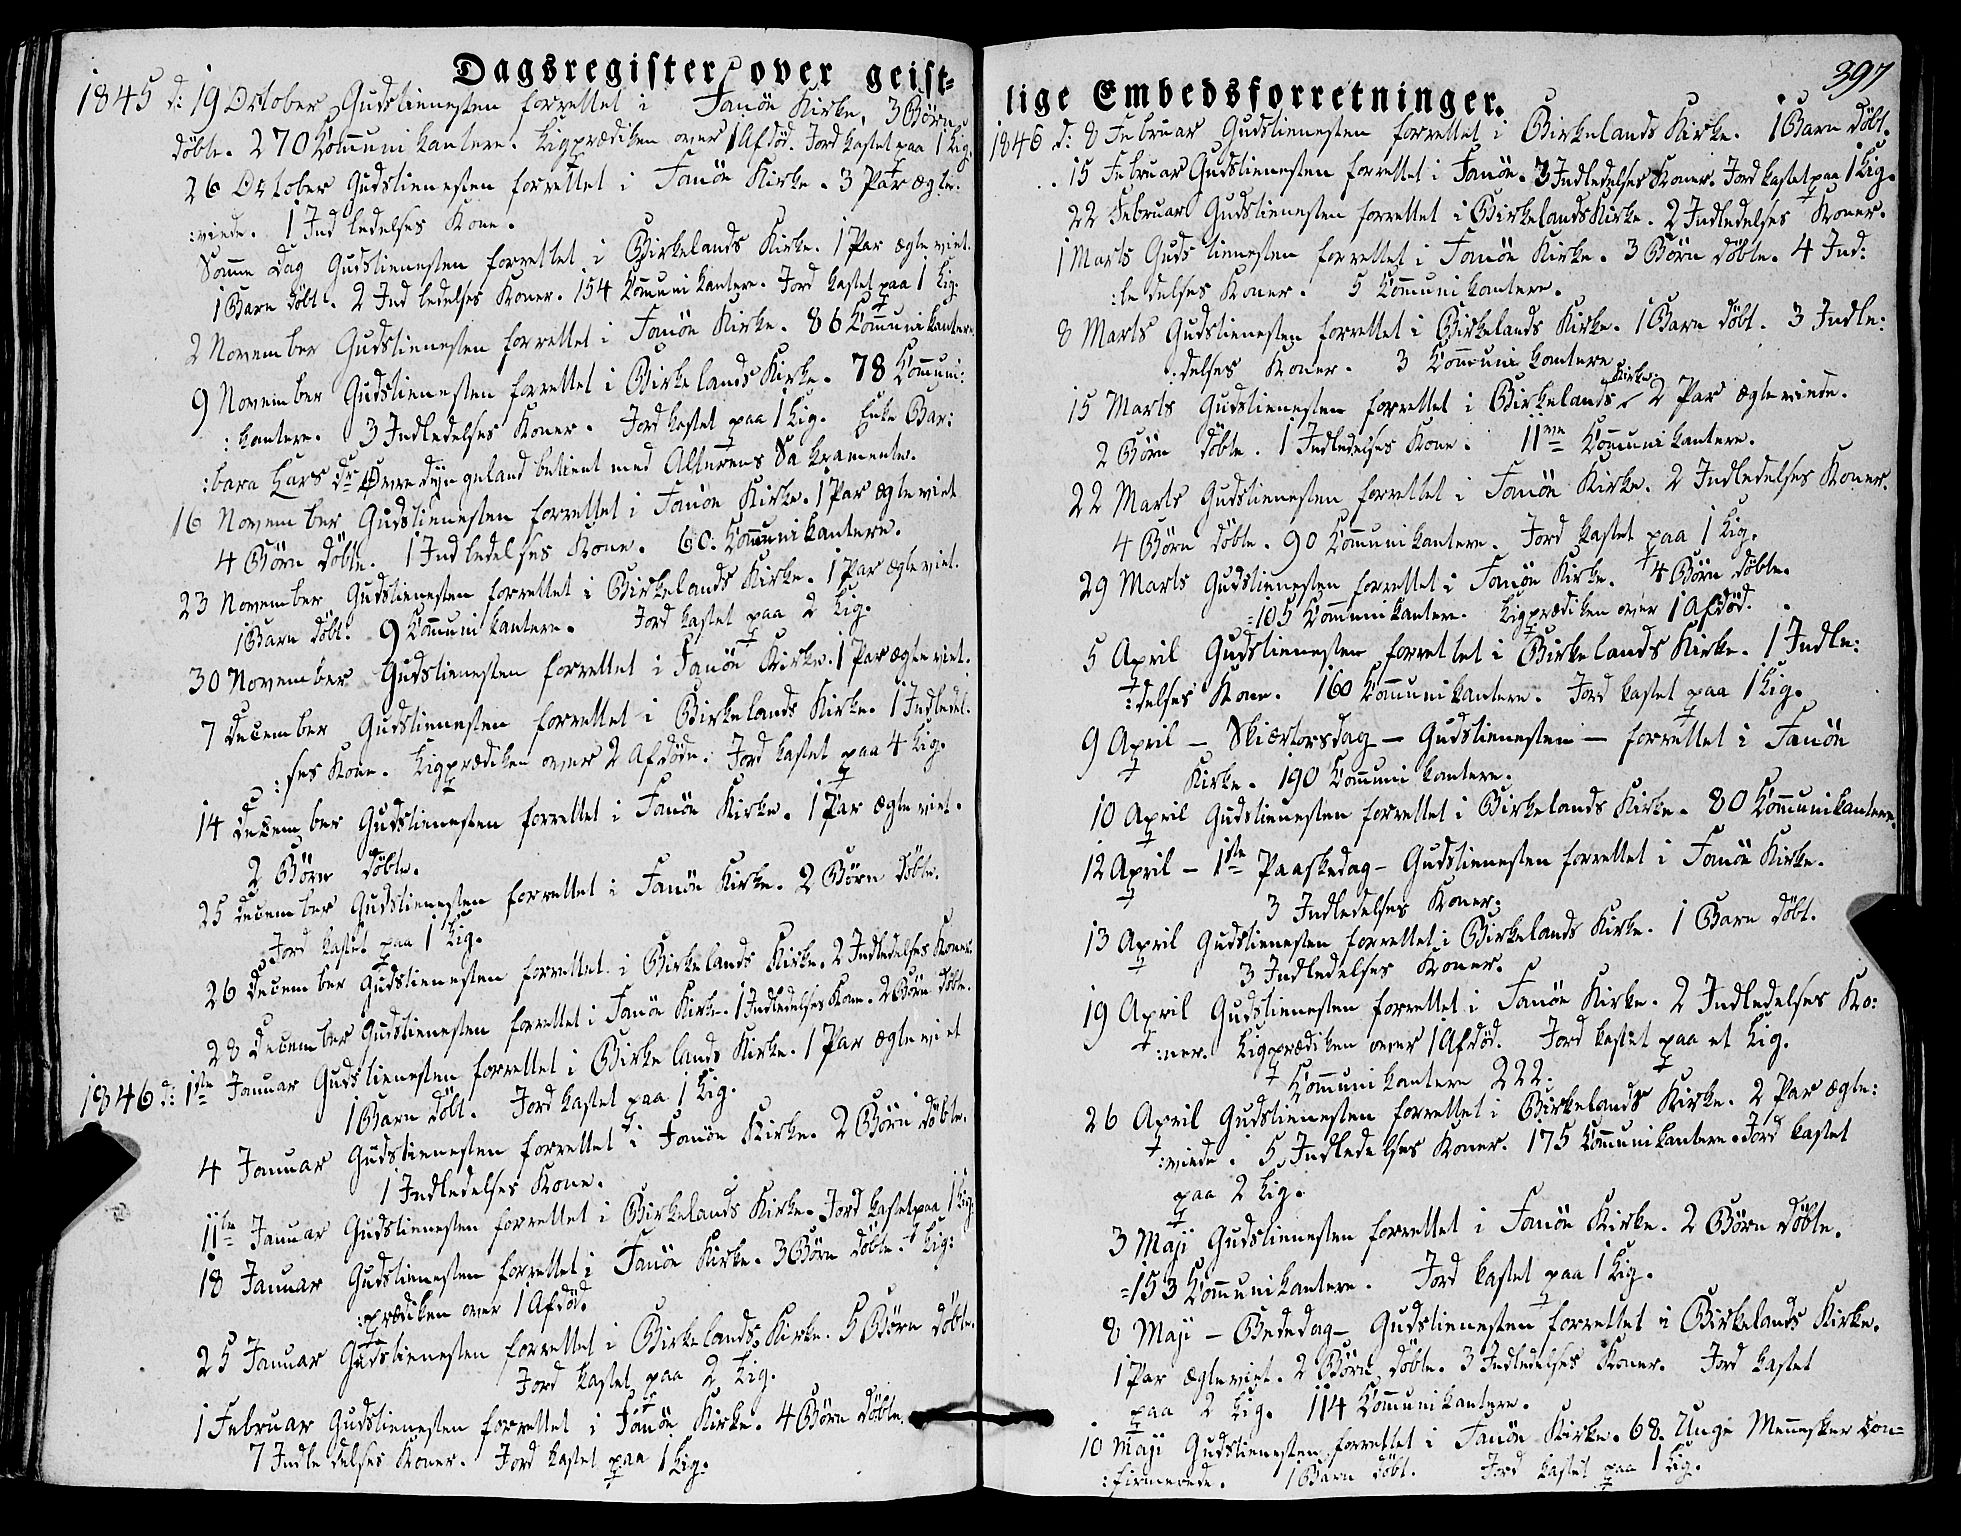 Dagsregister over geist-
1845 d: 19 October Gudstienesten forrettet i Fanöe Kirke, 3 Börn
döbte. 270 Communikantere. Ligprædiken over 1 Afdöd. Jord kastet paa 1 Lig.
26 October Gudstienesten forrettet i Fanöe Kirke. 3 Par ægte:
:viede. 1 Indledelses Kone.
Samme Dag Gudstienesten forrettet i Birkelands Kirke. 1 Par ægteviet.
1 Barn döbt. 2 Indledelses Koner. 154 Communikantere. Jord kastet paa 1 Lig.
2 November Gudstienesten forrettet i Fanöe Kirke. 86 Communikantere.
9 November Gudstienesten forrettet i Birkelands Kirke. 78 Communi:
:kantere. 3 Indledelses Koner. Jord kastet paa 1 Lig. Enke Bar:
:bara Lars Dr Övredyngeland betient med Alterens Sakramente.
16 November Gudstienesten forrettet i Fanöe Kirke. 1 Par ægteviet
4 Börn döbte. 1 Indledelses Kone. 60. Communikantere.
23 November Gudstienesten forrettet i Birkelands Kirke. 1 Par ægteviet.
1 Barn döbt. 9 Communikantere. Jord kastet paa 2 Lig.
30 November Gudstienesten forrettet i Fanöe Kirke. 1 Par ægteviet.
7 December Gudstienesten forrettet i Birkelands Kirke. 1 Indledel:
:ses Kone. Ligprædiken over 2 Afdöde. Jord kastet paa 4 Lig.
14 December Gudstienesten forrettet i Fanöe Kirke. 1 Par ægteviet.
2 Börn döbte.
25 December Gudstienesten forrettet i Fanöe Kirke. 2 Börn döbte.
Jord kastet paa 1 Lig.
26 December Gudstienesten forrettet i Birkelands Kirke. 2 Indledelses Koner.
28 December Gudstienesten forrettet i Fanöe Kirke. 1 Indledelses Kone. 2 Börn döbte.
1846 d: 1ste Januar Gudstienesten forrettet i Birkelands Kirke. 1 Par ægteviet
1 Barn döbt. Jord kastet paa 1 Lig.
4 Januar Gudstienesten forrettet i Fanöe Kirke. 2 Börn döbte.
1 Indledelses Kone.
11te Januar Gudstienesten forrettet i Birkelands Kirke. Jord kastet paa 1 Lig.
18 Januar Gudstienesten forrettet i Fanöe Kirke. 3 Börn döbte. Lig:
:prædiken over 1 Afdöd.
25 Januar Gudstienesten forrettet i Birkelands Kirke. 5 Börn döbte.
Jord kastet paa 2 Lig.
1 Februar Gudstienesten forrettet i Fanöe Kirke. 4 Börn döbte.
7 Indledelses Koner. Jord kastet paa 1 Lig.
397
lige Embedsforretninger.
1846 d: 8 Februar Gudstienesten forrettet i Birkelands Kirke. 1 Barn döbt.
15 Februar Gudstienesten forrettet i Fanöe. 3 Indledelses Koner. Jord kastet paa 1 Lig.
22 Februar Gudstienesten forrettet i Birkelands Kirke. 2 Indledelses Koner.
1 Marts Gudstienesten forrettet i Fanöe Kirke. 3 Börn döbte. 4 Ind:
:ledelses Koner. 5 Communikantere.
8 Marts Gudstienesten forrettet i Birkelands Kirke. 1 Barn döbt. 3 Indle:
:delses Koner. 3 Communikantere
15 Marts Gudstienesten forrettet i Birkelands Kirke. 2 Par ægteviede.
2 Börn döbte. 1 Indledelses Kone. 11 Communikantere.
22 Marts Gudstienesten forrettet i Fanöe Kirke. 2 Indledelses Koner.
4 Börn döbte. 90 Communikantere. Jord kastet paa 1 Lig.
29 Marts Gudstienesten forrettet i Fanöe Kirke. 4 Börn döbte.
=105 Communikantere. Ligprædiken over 1 Afdöd.
5 April Gudstienesten forrettet i Birkelands Kirke. 1 Indle:
:delses Kone. 160 Communikantere. Jord kastet paa 1 Lig.
9 April - Skiærtorsdag - Gudstienesten - forrettet i Fanöe
Kirke. 190 Communikantere.
10 April Gudstienesten forrettet i Birkelands Kirke. 80 Communikantere.
12 April - 1ste Paaskedag - Gudstienesten forrettet i Fanöe Kirke.
3 Indledelses Koner.
13 April Gudstienesten forrettet i Birkelands Kirke. 1 Barn döbt.
3 Indledelses Koner.
19 April Gudstienesten forrettet i Fanöe Kirke. 2 Indledelses Ko:
:ner. Ligprædiken over 1 Afdöd. Jord kastet paa et Lig.
Communikantere 222.
26 April Gudstienesten forrettet i Birkelands Kirke. 2 Par ægte:
:viede. 5 Indledelses Koner. 175 Communikantere. Jord kastet
paa 2 Lig.
3 Maji Gudstienesten forrettet i Fanöe Kirke. 2 Börn döbte.
=153 Communikantere. Jord kastet paa 1 Lig.
8 Maji - Bededag - Gudstienesten forrettet i Birkelands Kirke.
1 Par ægteviet. 2 Börn döbte. 3 Indledelses Koner. Jord kastet
paa 2 Lig. 114 Communikantere.
10 Maji Gudstienesten forrettet i Fanöe Kirke. 68 Unge Mennesker Con=
:firmerede. 1 Barn döbt. Jord kastet paa 1 Lig.